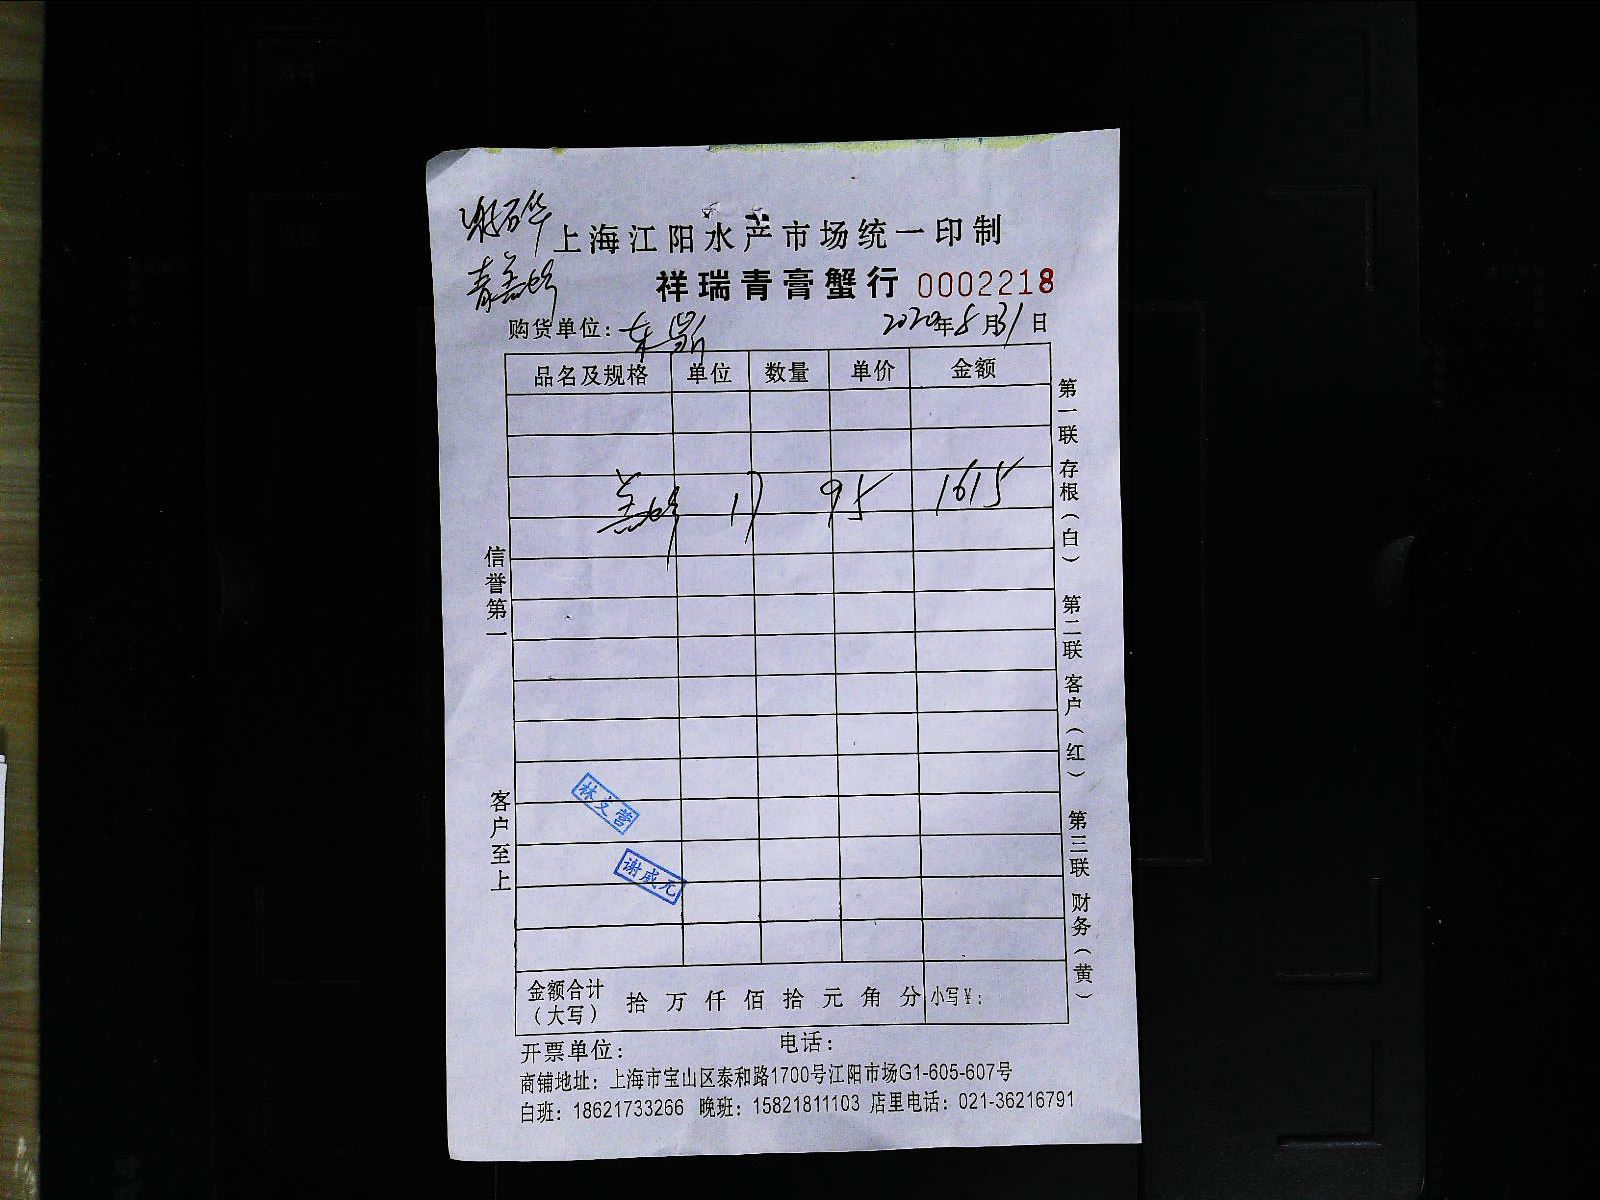 上海江阳水产市场统一印制
祥瑞青膏蟹行 0002218
购货单位: 东 2020年8月31日
品名及规格 单位 数量 单价 金额
17 95 1615
信誉第一
客户至上
第一联 存根(白) 第二联 客户(红) 第三联 财务(黄)
林文营
谢成元
金额合计(大写) 拾 万 仟 佰 拾 元 角 分 小写¥:
开票单位: 电话:
商铺地址: 上海市宝山区泰和路1700号江阳市场G1-605-607号
白班: 18621733266 晚班: 15821811103 店里电话: 021-36216791